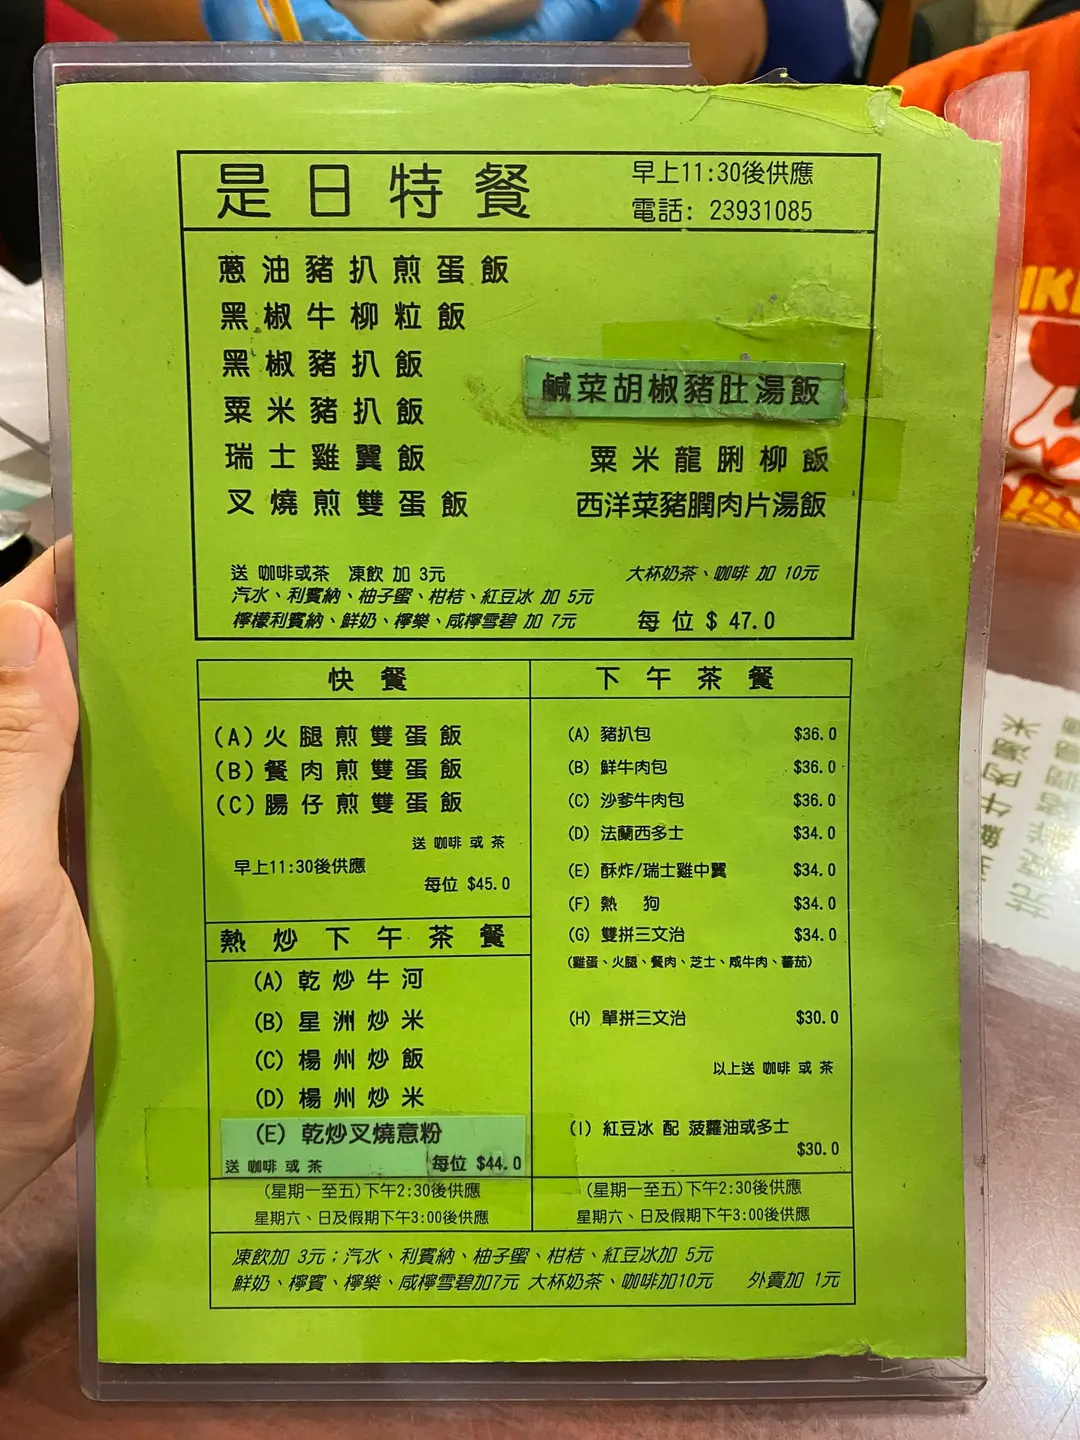 是日特餐
早上11:30後供應
電話: 23931085
蔥油豬扒煎蛋飯
黑椒牛柳粒飯
黑椒豬扒飯
粟米豬扒飯
瑞士雞翼飯
叉燒煎雙蛋飯
鹹菜胡椒豬肚湯飯
粟米龍脷柳飯
西洋菜豬膶肉片湯飯
送 咖啡或茶 凍飲 加 3元
汽水、利賓納、柚子蜜、柑桔、紅豆冰 加 5元
檸檬利賓納、鮮奶、檸樂、咸檸雪碧 加 7元
大杯奶茶、咖啡 加 10元
每位 $ 47.0
快餐
(A) 火腿煎雙蛋飯
(B) 餐肉煎雙蛋飯
(C) 腸仔煎雙蛋飯
送 咖啡 或 茶
早上11:30後供應
每位 $45.0
熱炒下午茶餐
(A) 乾炒牛河
(B) 星洲炒米
(C) 楊州炒飯
(D) 楊州炒米
(E) 乾炒叉燒意粉
送 咖啡 或 茶 每位 $44.0
(星期一至五)下午2:30後供應
星期六、日及假期下午3:00後供應
下午茶餐
(A) 豬扒包 $36.0
(B) 鮮牛肉包 $36.0
(C) 沙爹牛肉包 $36.0
(D) 法蘭西多士 $34.0
(E) 酥炸/瑞士雞中翼 $34.0
(F) 熱 狗 $34.0
(G) 雙拼三文治 $34.0
(雞蛋、火腿、餐肉、芝士、咸牛肉、蕃茄)
(H) 單拼三文治 $30.0
以上送 咖啡 或 茶
(I) 紅豆冰 配 菠蘿油或多士
$30.0
(星期一至五)下午2:30後供應
星期六、日及假期下午3:00後供應
凍飲加 3元；汽水、利賓納、柚子蜜、柑桔、紅豆冰加 5元
鮮奶、檸賓、檸樂、咸檸雪碧加7元 大杯奶茶、咖啡加10元 外賣加 1元